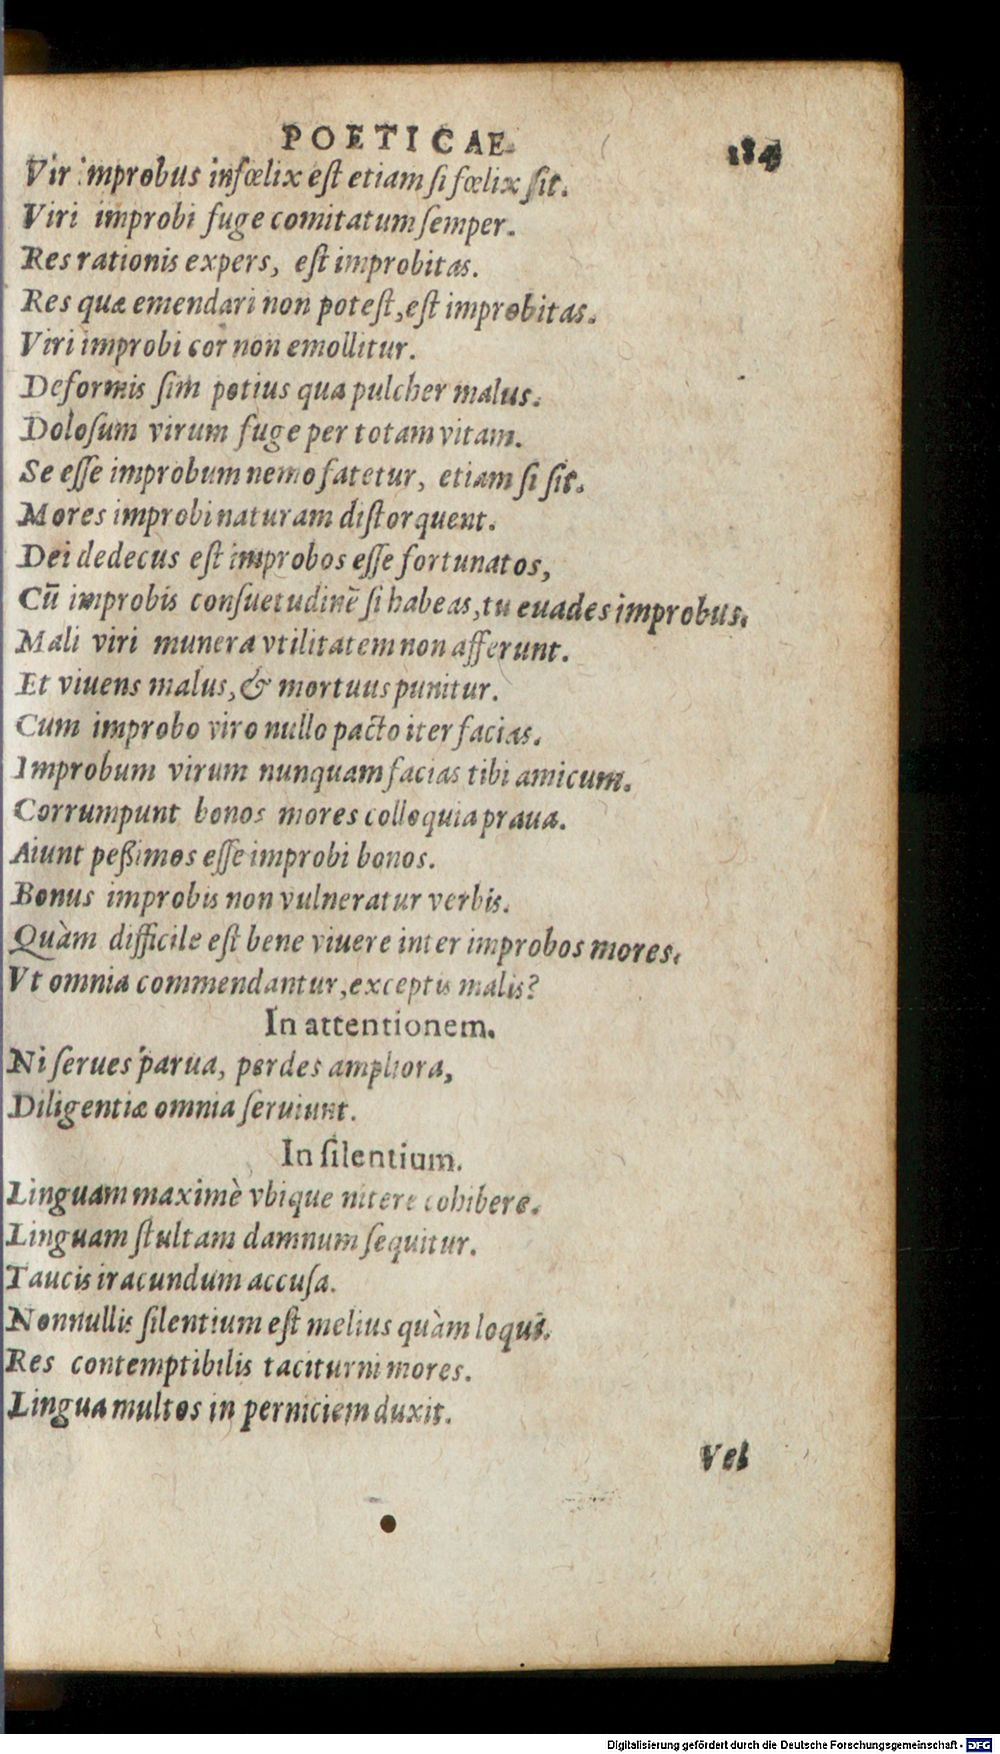 POETICAE.
Vir improbus infœlix eſt etiam ſi fœlix ſit.
Viri improbi fuge comitatum ſemper.
Res rationis expers, eſt improbitas.
Res quæ emendari non poteſt, eſt improbitas.
Viri improbi cor non emollitur.
Deformis ſim potius qua pulcher malus.
Doloſum virum fuge per totam vitam.
Se eſſe improbum nemo fatetur, etiam ſi ſit.
Mores improbi naturam diſtorquent.
Dei dedecus eſt improbos eſſe fortunatos,
Cū improbis conſuetudinē ſi habeas, tu euades improbus.
Mali viri munera vtilitatem non afferunt.
Et viuens malus, & mortuus punitur.
Cum improbo viro nullo pacto iter facias.
Improbum virum nunquam facias tibi amicum.
Corrumpunt bonos mores colloquia praua.
Aiunt peßimos eſſe improbi bonos.
Bonus improbis non vulneratur verbis.
Quàm difficile eſt bene viuere inter improbos mores.
Vt omnia commendantur, exceptis malis?
In attentionem.
Ni ſerues parua, perdes ampliora,
Diligentiæ omnia ſeruiunt.
In ſilentium.
Linguam maximè vbique nitere cohibere.
Linguam ſtultam damnum ſequitur.
Taucis iracundum accuſa.
Nonnullis ſilentium eſt melius quàm loqui.
Res contemptibilis taciturni mores.
Lingua multos in perniciem duxit.
Vel
Digitalisierung gefördert durch die Deutsche Forschungsgemeinschaft - DFG